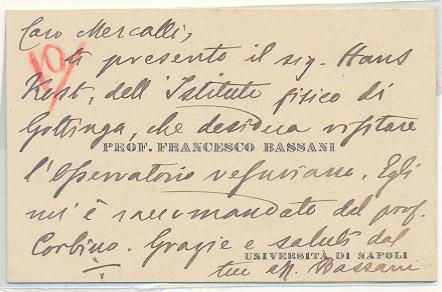 Caro Mercalli,
10
ti presento il sig. Hans
Kest, dell'Istituto fisico di
Gottinga, che desidera visitare
PROF. FRANCESCO BASSANI
l'Osservatorio vesuviano. Egli
mi è raccomandato dal prof.
Corbino. Grazie e saluti dal
UNIVERSITÀ DI NAPOLI
tuo aff. Bassani